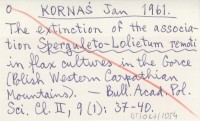 O KORNAŚ Jan 1961.
The extinction of the associa-
tion Sperguleto-Lolietum remoti
in flax cultures in the Gorce
(Polish Western Carpathian
Mountains). — Bull. Acad. Pol.
Sci. Cl. II, 9 (1): 37-40.